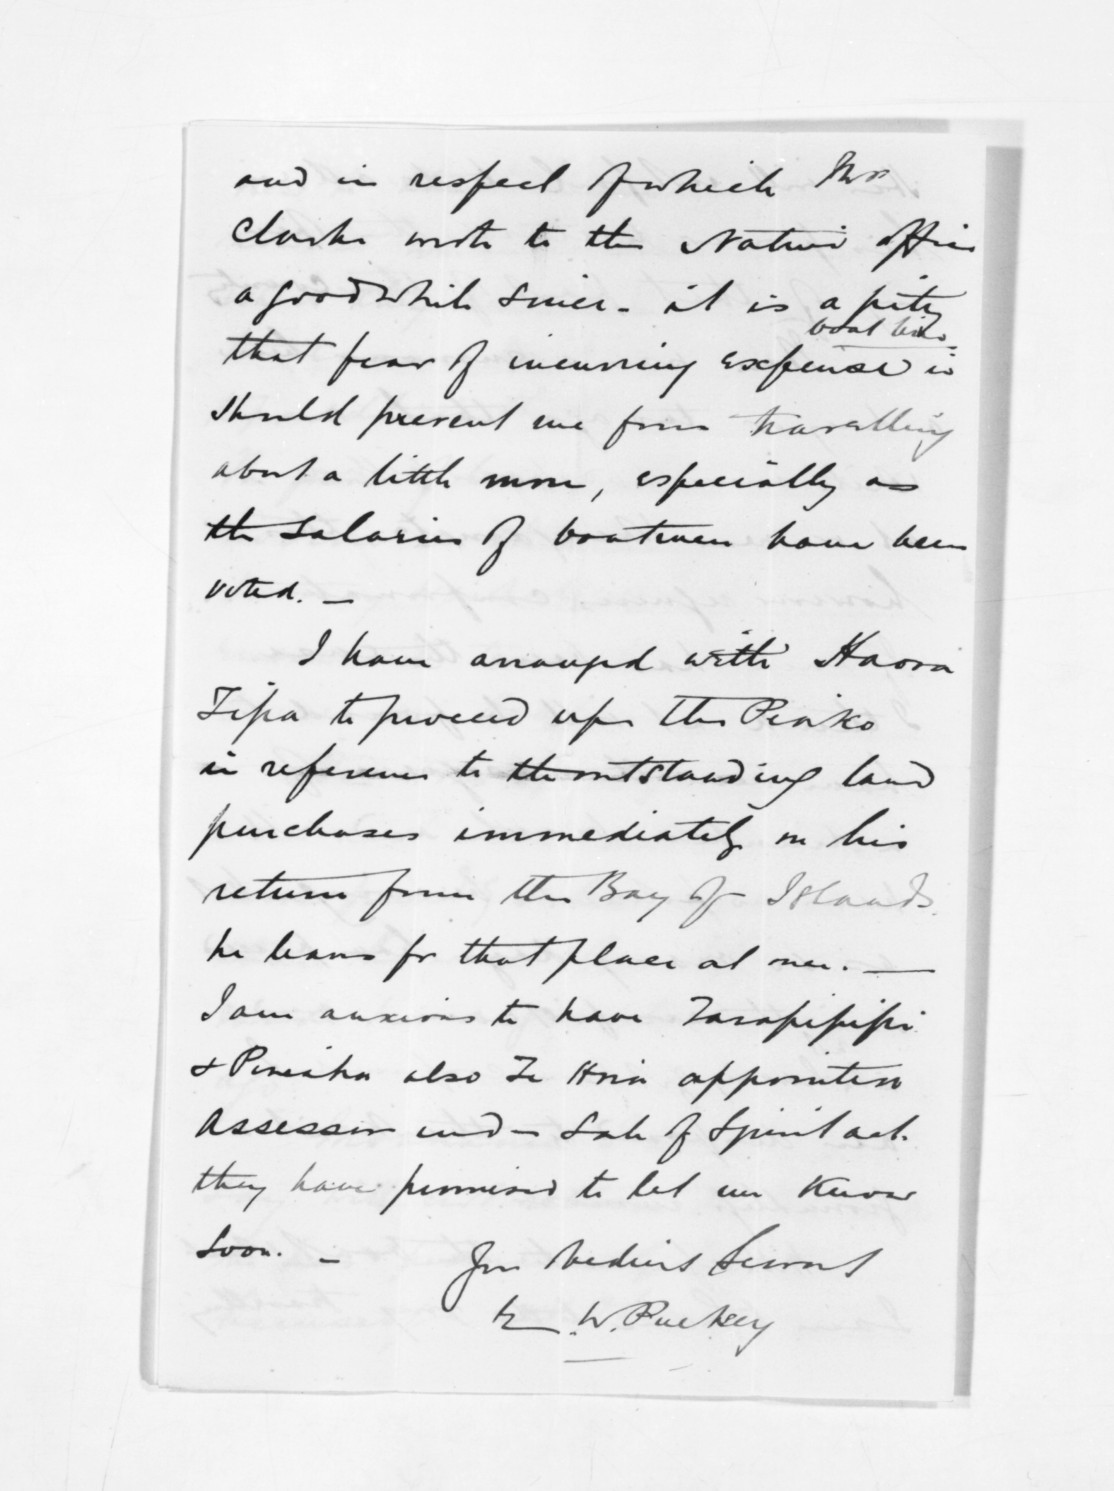 and in respect of which Mr
Clarke wrote to the Native office
a good while since - it is a pity
boat hire
that fear of incurring expense in
should prevent me from travelling
about a little more, especially as
the salaries of boatmen have been
voted. -
I have arranged with Haora
Tipa to proceed up the Piako
in reference to the outstanding land
purchases immediately on his
return from the Bay of Islands.
he leaves for that place at once. -
I am anxious to have Tarapipipi
& Pineaha also Te Hria appointed
Assessors und- Sale of Spirit act.
they have promised to let me know
soon. - Yr Obedient Servant
E. W. Puckey